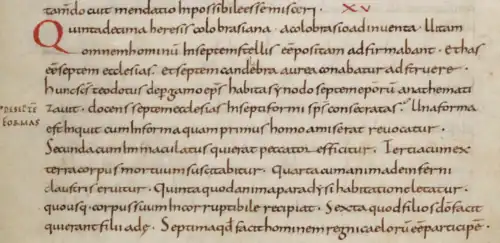 tam docuit mendatio inpossibile esse misceri · XV
Quintadecima heresis colobrasiana · a colobrasio adinventa · Vitam
omnem hominū In septem stellis eē positam adfirmabant · et has
eē septem ecclesias · et septem candelabra aurea conabatur adstruere ·
hunc scs teodotus de pergamo eps habita synodo septem eporū anathemati
zavit · docens septem ecclesias In septiformi spū consecratas · Una forma
DE SEPTĒ FORMAS
est Inquit cum In forma quam primus homo amiserat revocatur ·
Secunda cum Immaculatus querat peccator efficitur · Tertia cum ex
terra corpus mortuum suscitabitur · Quarta cum anima de inferni
claustris eruitur · Quinta quod anima paradysi habitatione letatur ·
quousq · corpus suum Incorruptibile recipiat · Sexta quod filios dī facit
qui erant filii adę · Septima qd facit hominem regni caelorū eē participē ·